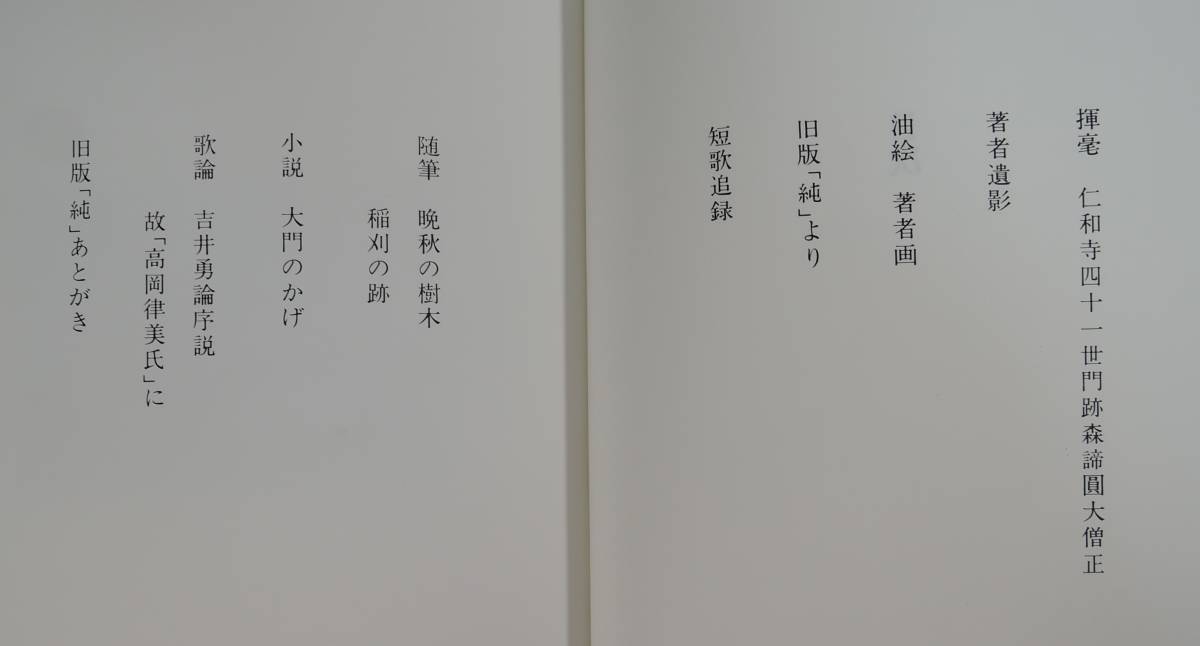 揮毫　仁和寺四十一世門跡森諦圓大僧正
著者遺影
油絵　著者画
旧版「純」より
短歌追録
随筆　晩秋の樹木
稲刈の跡
小説　大門のかげ
歌論　吉井勇論序説
故「高岡律美氏」に
旧版「純」あとがき